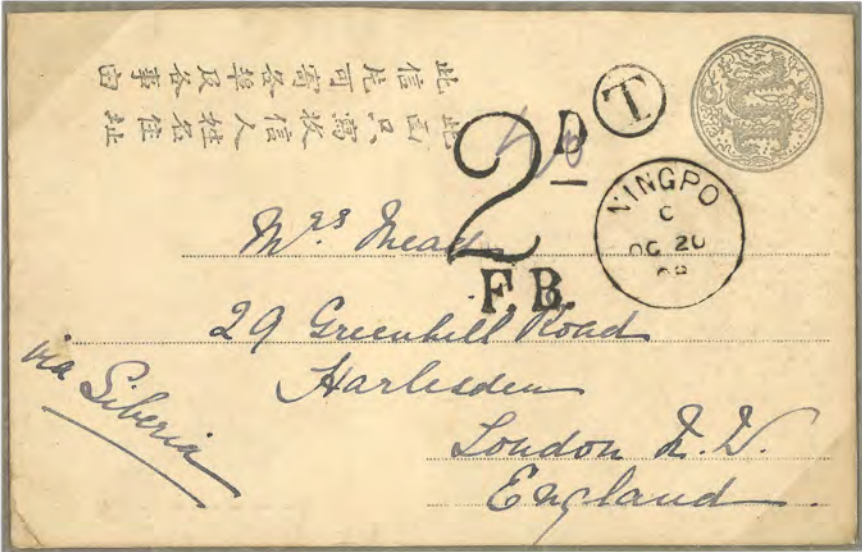 此面只寫收信人姓名住址
此信片可寄各埠及各事由
T
2D
F.B.
NINGPO
C
OC 20
Mrs Mead
29 Greenhill Road
Harlesden
London N.W.
England
via Siberia